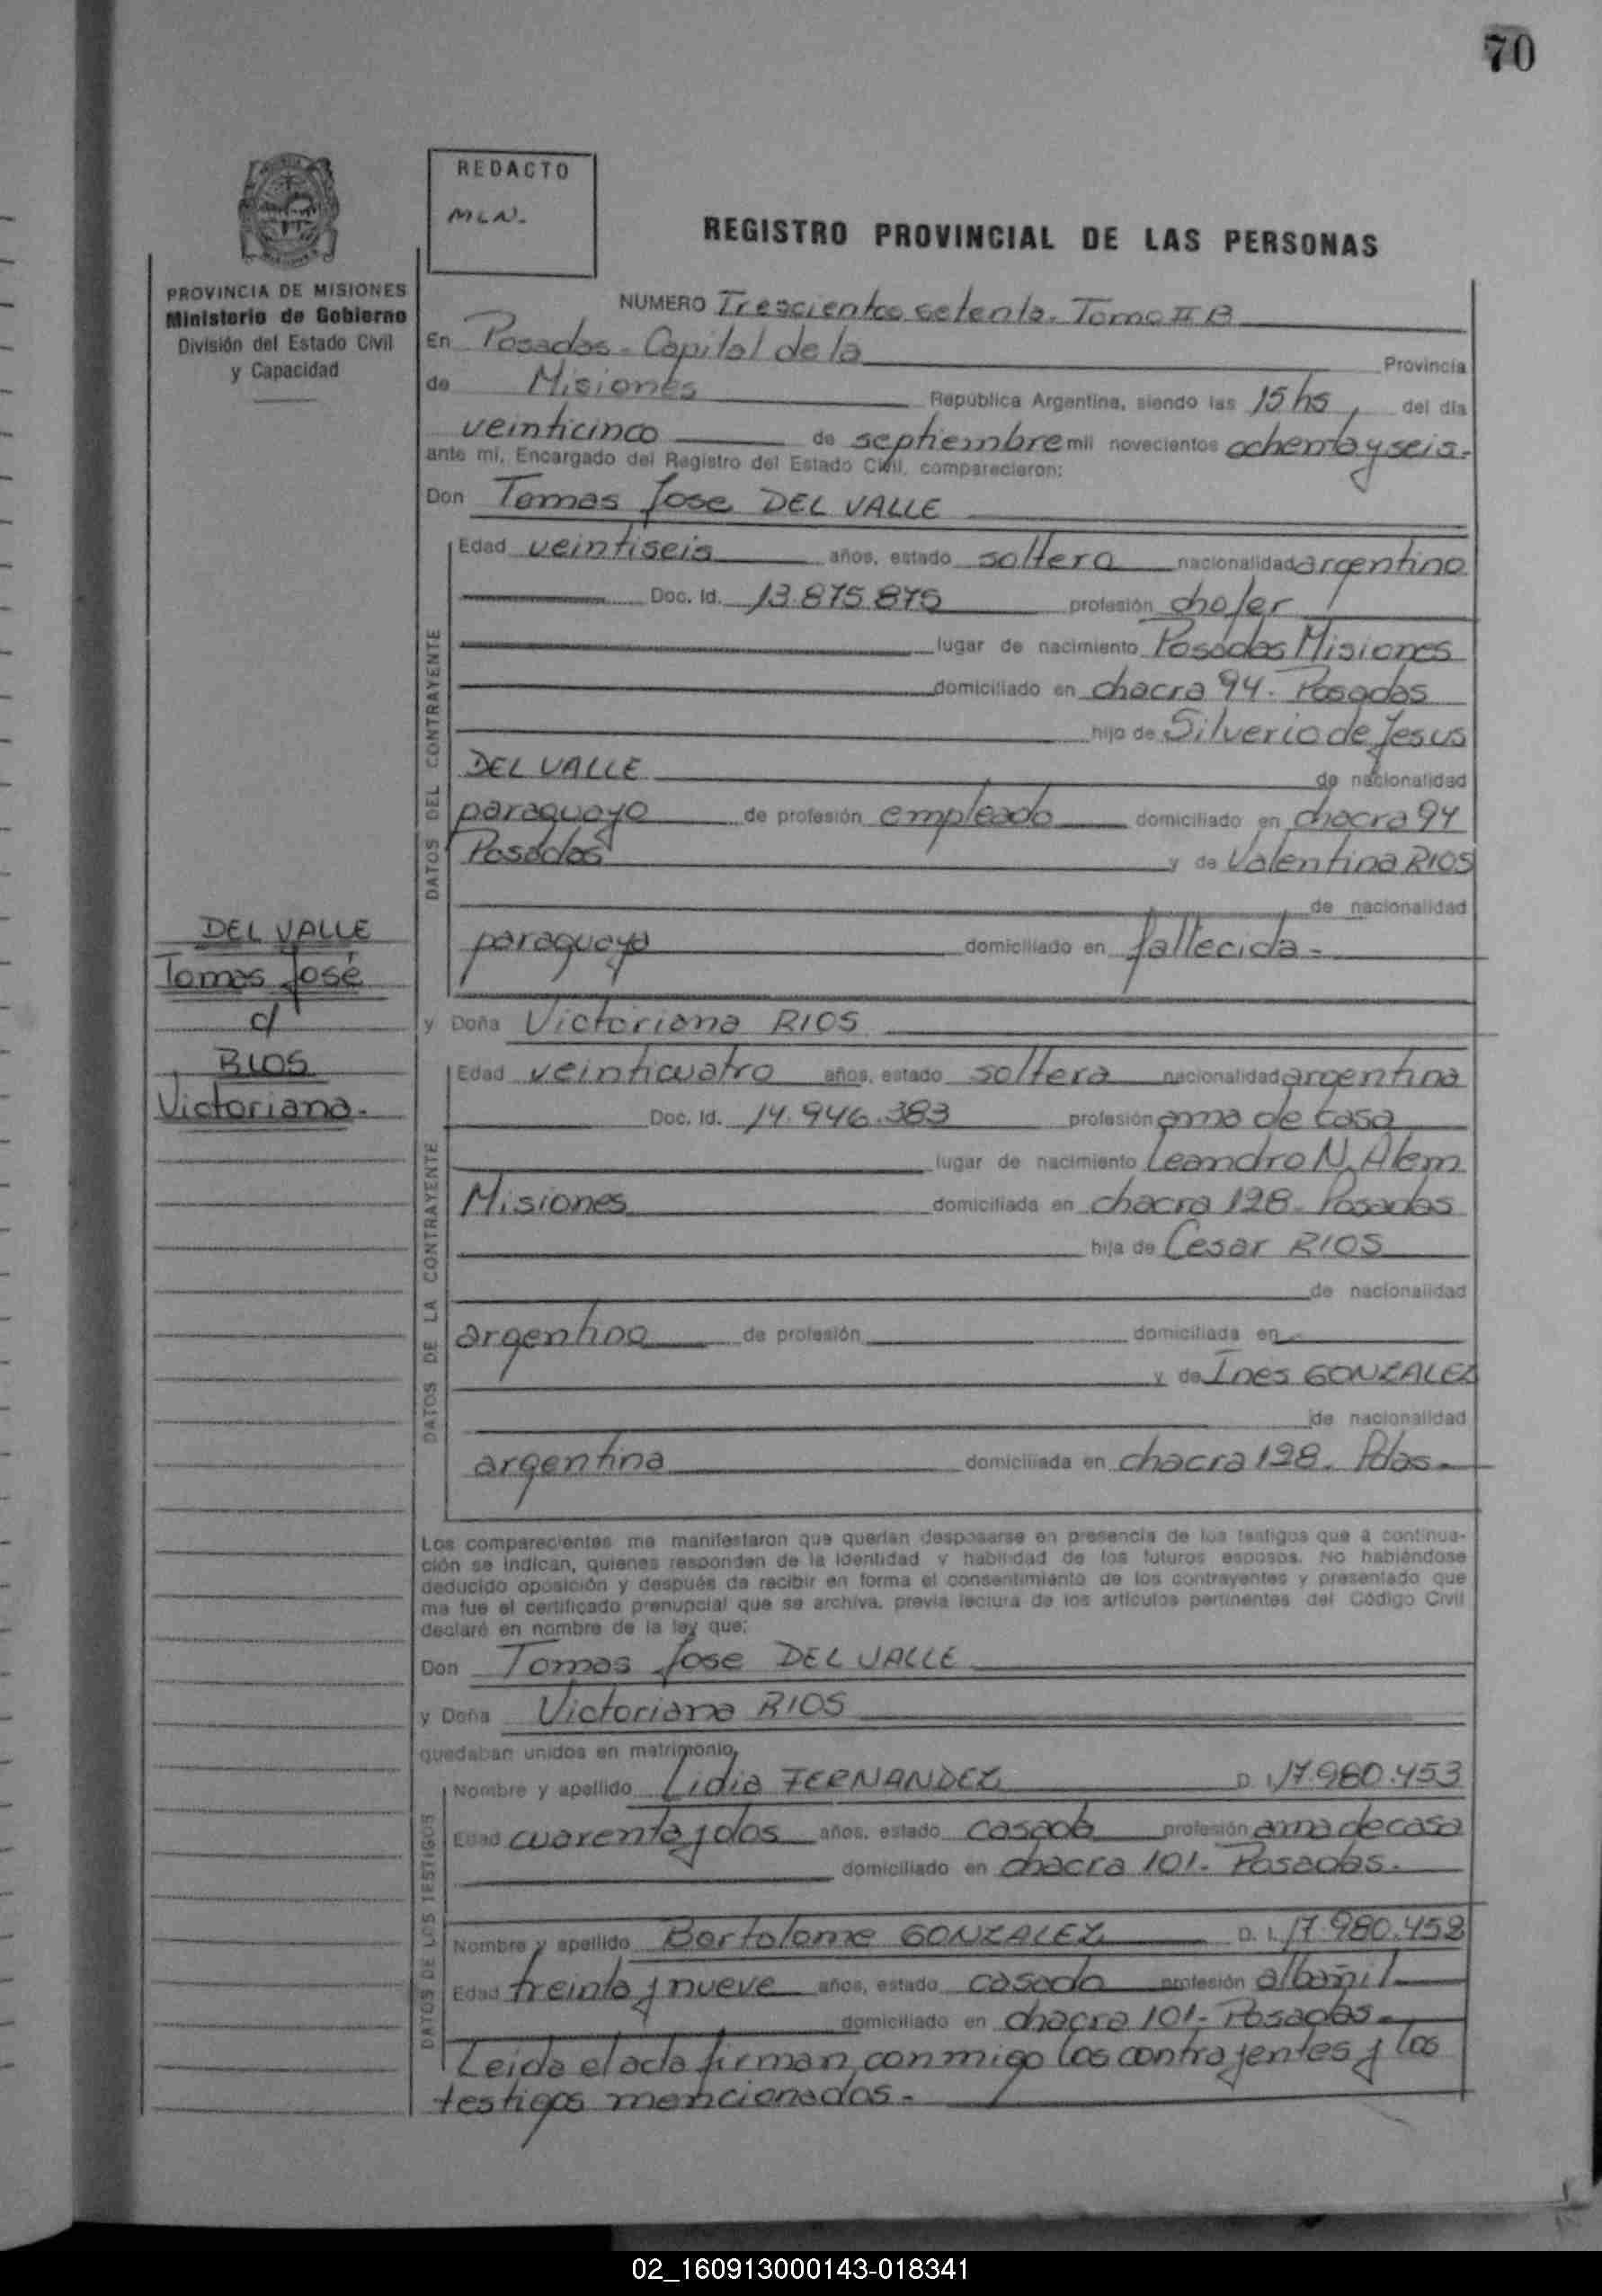 70
REDACTO
MLN.
REGISTRO PROVINCIAL DE LAS PERSONAS
PROVINCIA DE MISIONES
Ministerio de Gobierno
División del Estado Civil
y Capacidad
NUMERO Trescientos setenta. Tomo II B
En Posadas - Capital de la Provincia
de Misiones República Argentina, siendo las 15 hs, del día
veinticinco de septiembre mil novecientos ochenta y seis.-
ante mi, Encargado del Registro del Estado Civil, comparecieron:
Don Tomas Jose DEL VALLE
DATOS DEL CONTRAYENTE
Edad veintiseis años, estado soltero nacionalidad argentino
Doc. Id. 13.875.875 profesión chofer
lugar de nacimiento Posadas Misiones
domiciliado en chacra 94. Posadas
hijo de Silverio de Jesus
DEL VALLE de nacionalidad
paraguayo de profesión empleado domiciliado en chacra 94
Posadas y de Valentina RIOS
de nacionalidad
paraguaya domiciliado en fallecida.-
DEL VALLE
Tomas José
c/
RIOS
Victoriana.-
y Doña Victoriana RIOS
DATOS DE LA CONTRAYENTE
Edad veinticuatro años, estado soltera nacionalidad argentina
Doc. Id. 14.946.383 profesión ama de casa
lugar de nacimiento Leandro N. Alem
Misiones domiciliada en chacra 128. Posadas
hija de Cesar RIOS
de nacionalidad
argentino de profesión domiciliada en
y de Ines GONZALEZ
de nacionalidad
argentina domiciliada en chacra 128. Pdas.-
Los comparecientes me manifestaron que querían desposarse en presencia de los testigos que a continua-
ción se indican, quienes responden de la identidad y habilidad de los futuros esposos. No habiéndose
deducido oposición y después de recibir en forma el consentimiento de los contrayentes y presentado que
me fue el certificado prenupcial que se archiva, previa lectura de los artículos pertinentes del Código Civil
declaré en nombre de la ley que:
Don Tomas Jose DEL VALLE
y Doña Victoriana RIOS
quedaban unidos en matrimonio,
DATOS DE LOS TESTIGOS
Nombre y apellido Lidia FERNANDEZ D. I. 17.980.453
Edad cuarenta y dos años, estado casada profesión ama de casa
domiciliado en chacra 101.- Posadas.-
Nombre y apellido Bartolome GONZALEZ D. I. 17.980.452
Edad treinta y nueve años, estado casado profesión albañil
domiciliado en chacra 101.- Posadas.-
Leida el acta firman conmigo los contrayentes y los
testigos mencionados.-
02_160913000143-018341